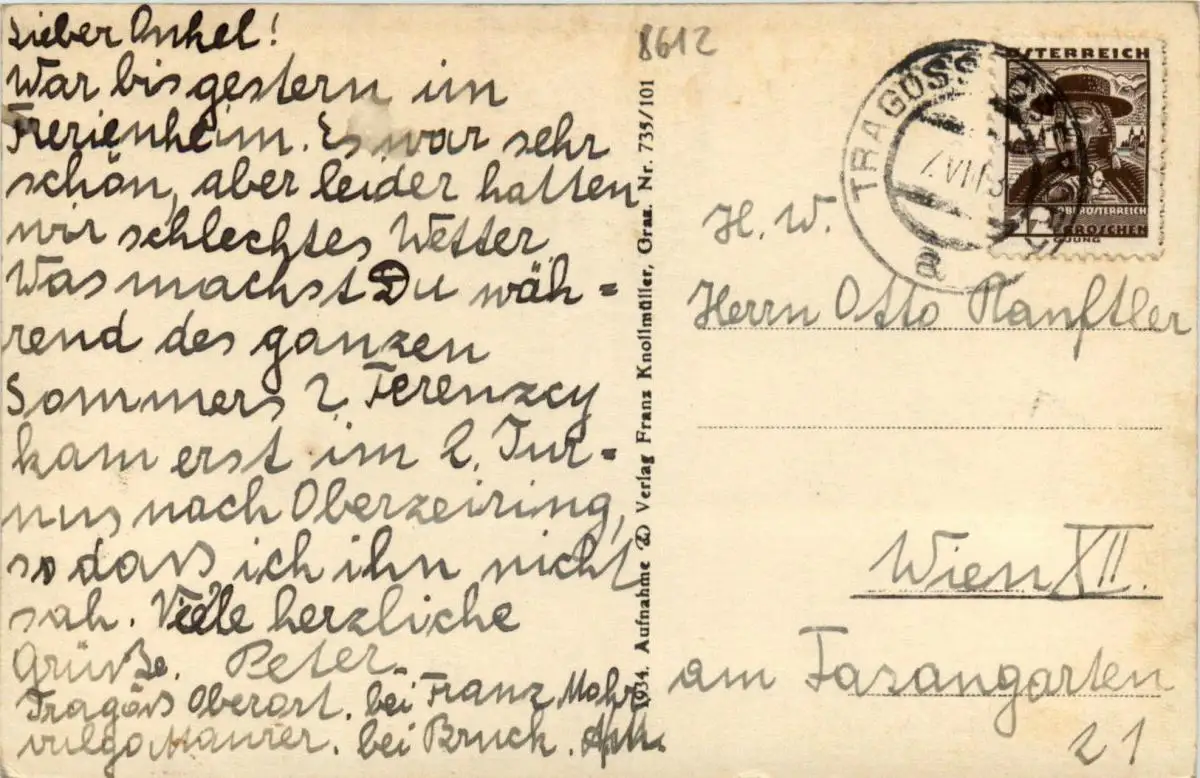 Lieber Onkel!
War bis gestern im
Frerienheim. Es war sehr
schön, aber leider hatten
wir schlechtes Wetter.
Was machst Du wäh=
rend des ganzen
Sommers? Ferenzcy
kam erst im 2. Tur=
nus nach Oberzeiring,
so dass ich ihn nicht
sah. Viele herzliche
Grüsse. Peter.
Tragöss Oberort. bei Franz Mohr
vulgo Maurer. bei Bruck.
1934. Aufnahme Verlag Franz Knollmüller, Graz. Nr. 735/101
8612
ÖSTERREICH
OBERÖSTERREICH
GROSCHEN
TRAGÖSS
H. W.
Herrn Otto Ranftler
Wien XII.
am Fasangarten
21